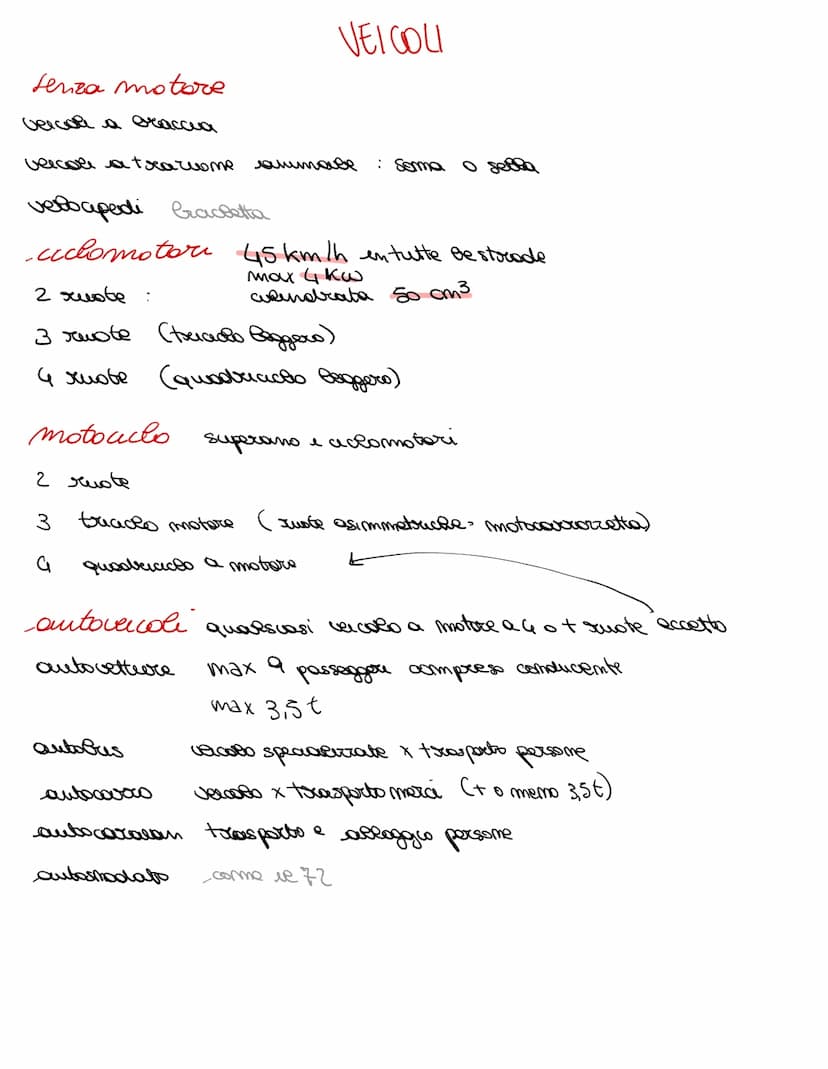 VEICOLI
senza motore
veicoli a braccia
veicoli a trazione animale : soma o sella
velocipedi bracceletta
ciclomotori 45 km/h in tutte le strade
max 4 Kw
2 ruote : cilindrata 50 cm³
3 ruote (triciclo leggero)
4 ruote (quadriciclo leggero)
motociclo superano i ciclomotori
2 ruote
3 triciclo motore ( ruote asimmetriche = motocarrozzetta)
4 quadriciclo a motore
autoveicoli qualsiasi veicolo a motore a 4 o + ruote eccetto
autovetture max 9 passeggeri compreso conducente
max 3,5 t
autobus veicolo specializzato x trasporto persone
autocarro veicolo x trasporto merci (+ o meno 3,5t)
autocaravan trasporto e alloggio persone
autosnodato come il 72